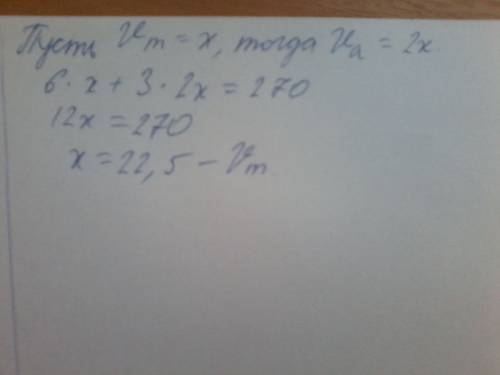 Пусть Vт = x, тогда Vа = 2x.
6·x + 3·2x = 270
12x = 270
x = 22,5 – Vт